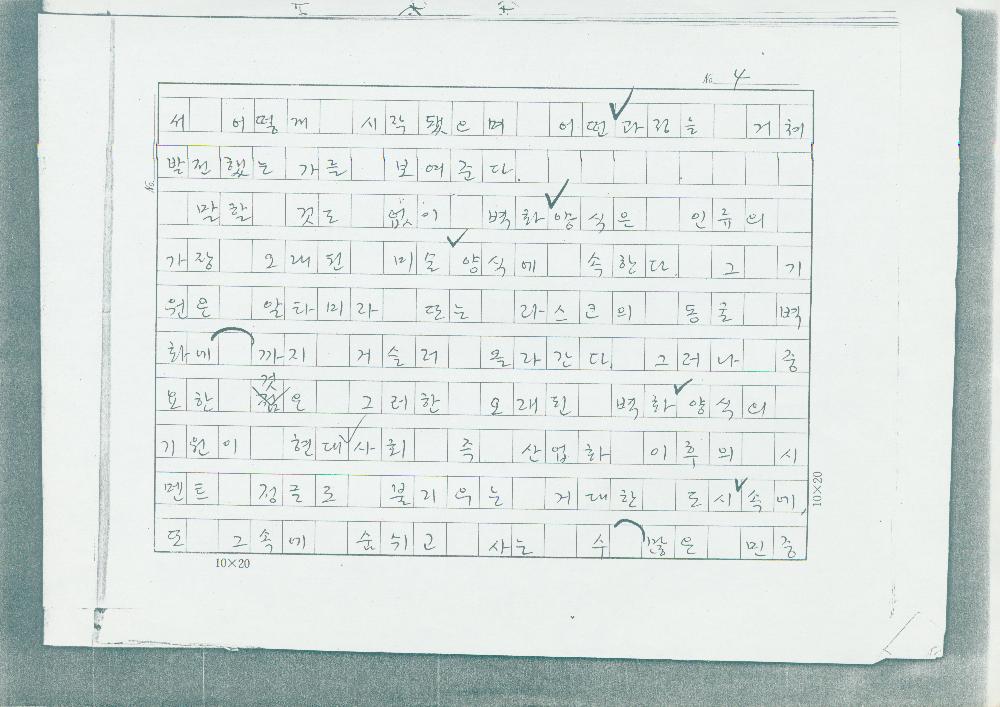 No. 4
서 어떻게 시작됐으며 어떤과정을 거쳐
발전했는 가를 보여준다.
말할 것도 없이 벽화양식은 인류의
가장 오래된 미술 양식에 속한다. 그 기
원은 알타미라 또는 라스코의 동굴 벽
화에 까지 거슬러 올라간다. 그러나 중
것
요한 은 그러한 오래된 벽화양식의
기원이 현대사회 즉 산업화 이후의 시
멘트 정글로 불리우는 거대한 도시속에,
또 그 속에 숨쉬고 사는 수 많은 민중
No.
10×20
10×20